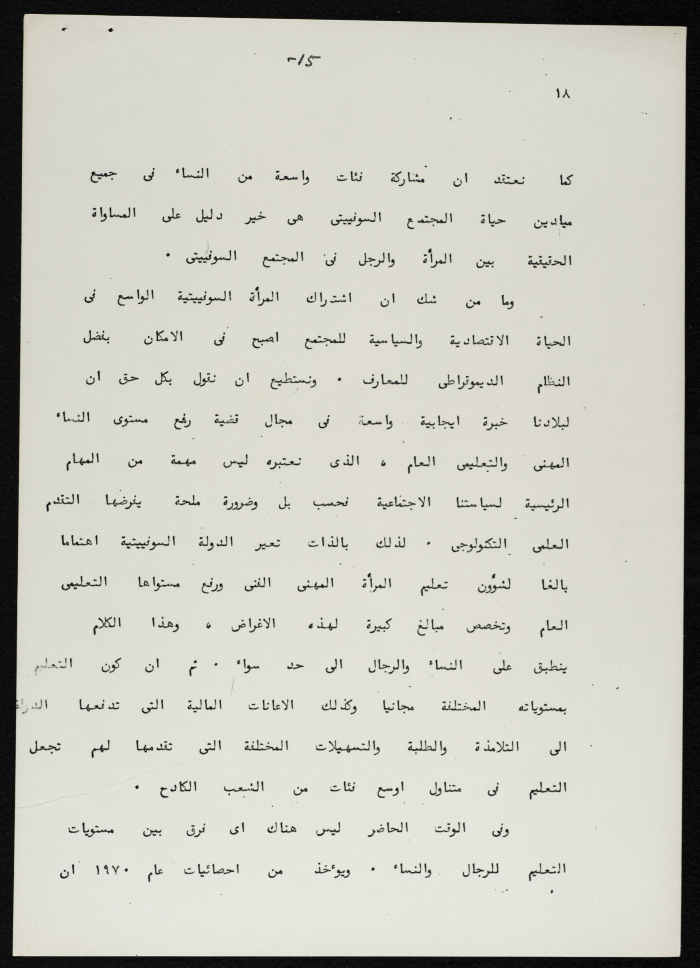 -15
١٨
كما نعتقد ان مشاركة فئات واسعة من النساء فى جميع
ميادين حياة المجتمع السوفييتى هى خير دليل على المساواة
الحقيقية بين المرأة والرجل فى المجتمع السوفييتى .
وما من شك ان اشتراك المرأة السوفييتية الواسع فى
الحياة الاقتصادية والسياسية للمجتمع اصبح فى الامكان بفضل
النظام الديموقراطى للمعارف . ونستطيع ان نقول بكل حق ان
لبلادنا خبرة ايجابية واسعة فى مجال قضية رفع مستوى النساء
المهنى والتعليمى العام ، الذى نعتبره ليس مهمة من المهام
الرئيسية لسياستنا الاجتماعية فحسب بل وضرورة ملحة يفرضها التقدم
العلمى التكنولوجى . لذلك بالذات تعير الدولة السوفييتية اهتماما
بالغا لشؤون تعليم المرأة المهنى الفنى ورفع مستواها التعليمى
العام وتخصص مبالغ كبيرة لهذه الاغراض ، وهذا الكلام
ينطبق على النساء والرجال الى حد سواء . ثم ان كون التعليم
بمستوياته المختلفة مجانيا وكذلك الاعانات المالية التى تدفعها
الى التلامذة والطلبة والتسهيلات المختلفة التى تقدمها لهم تجعل
التعليم فى متناول اوسع فئات من الشعب الكادح .
وفى الوقت الحاضر ليس هناك اى فرق بين مستويات
التعليم للرجال والنساء . ويؤخذ من احصائيات عام ١٩٧٠ ان